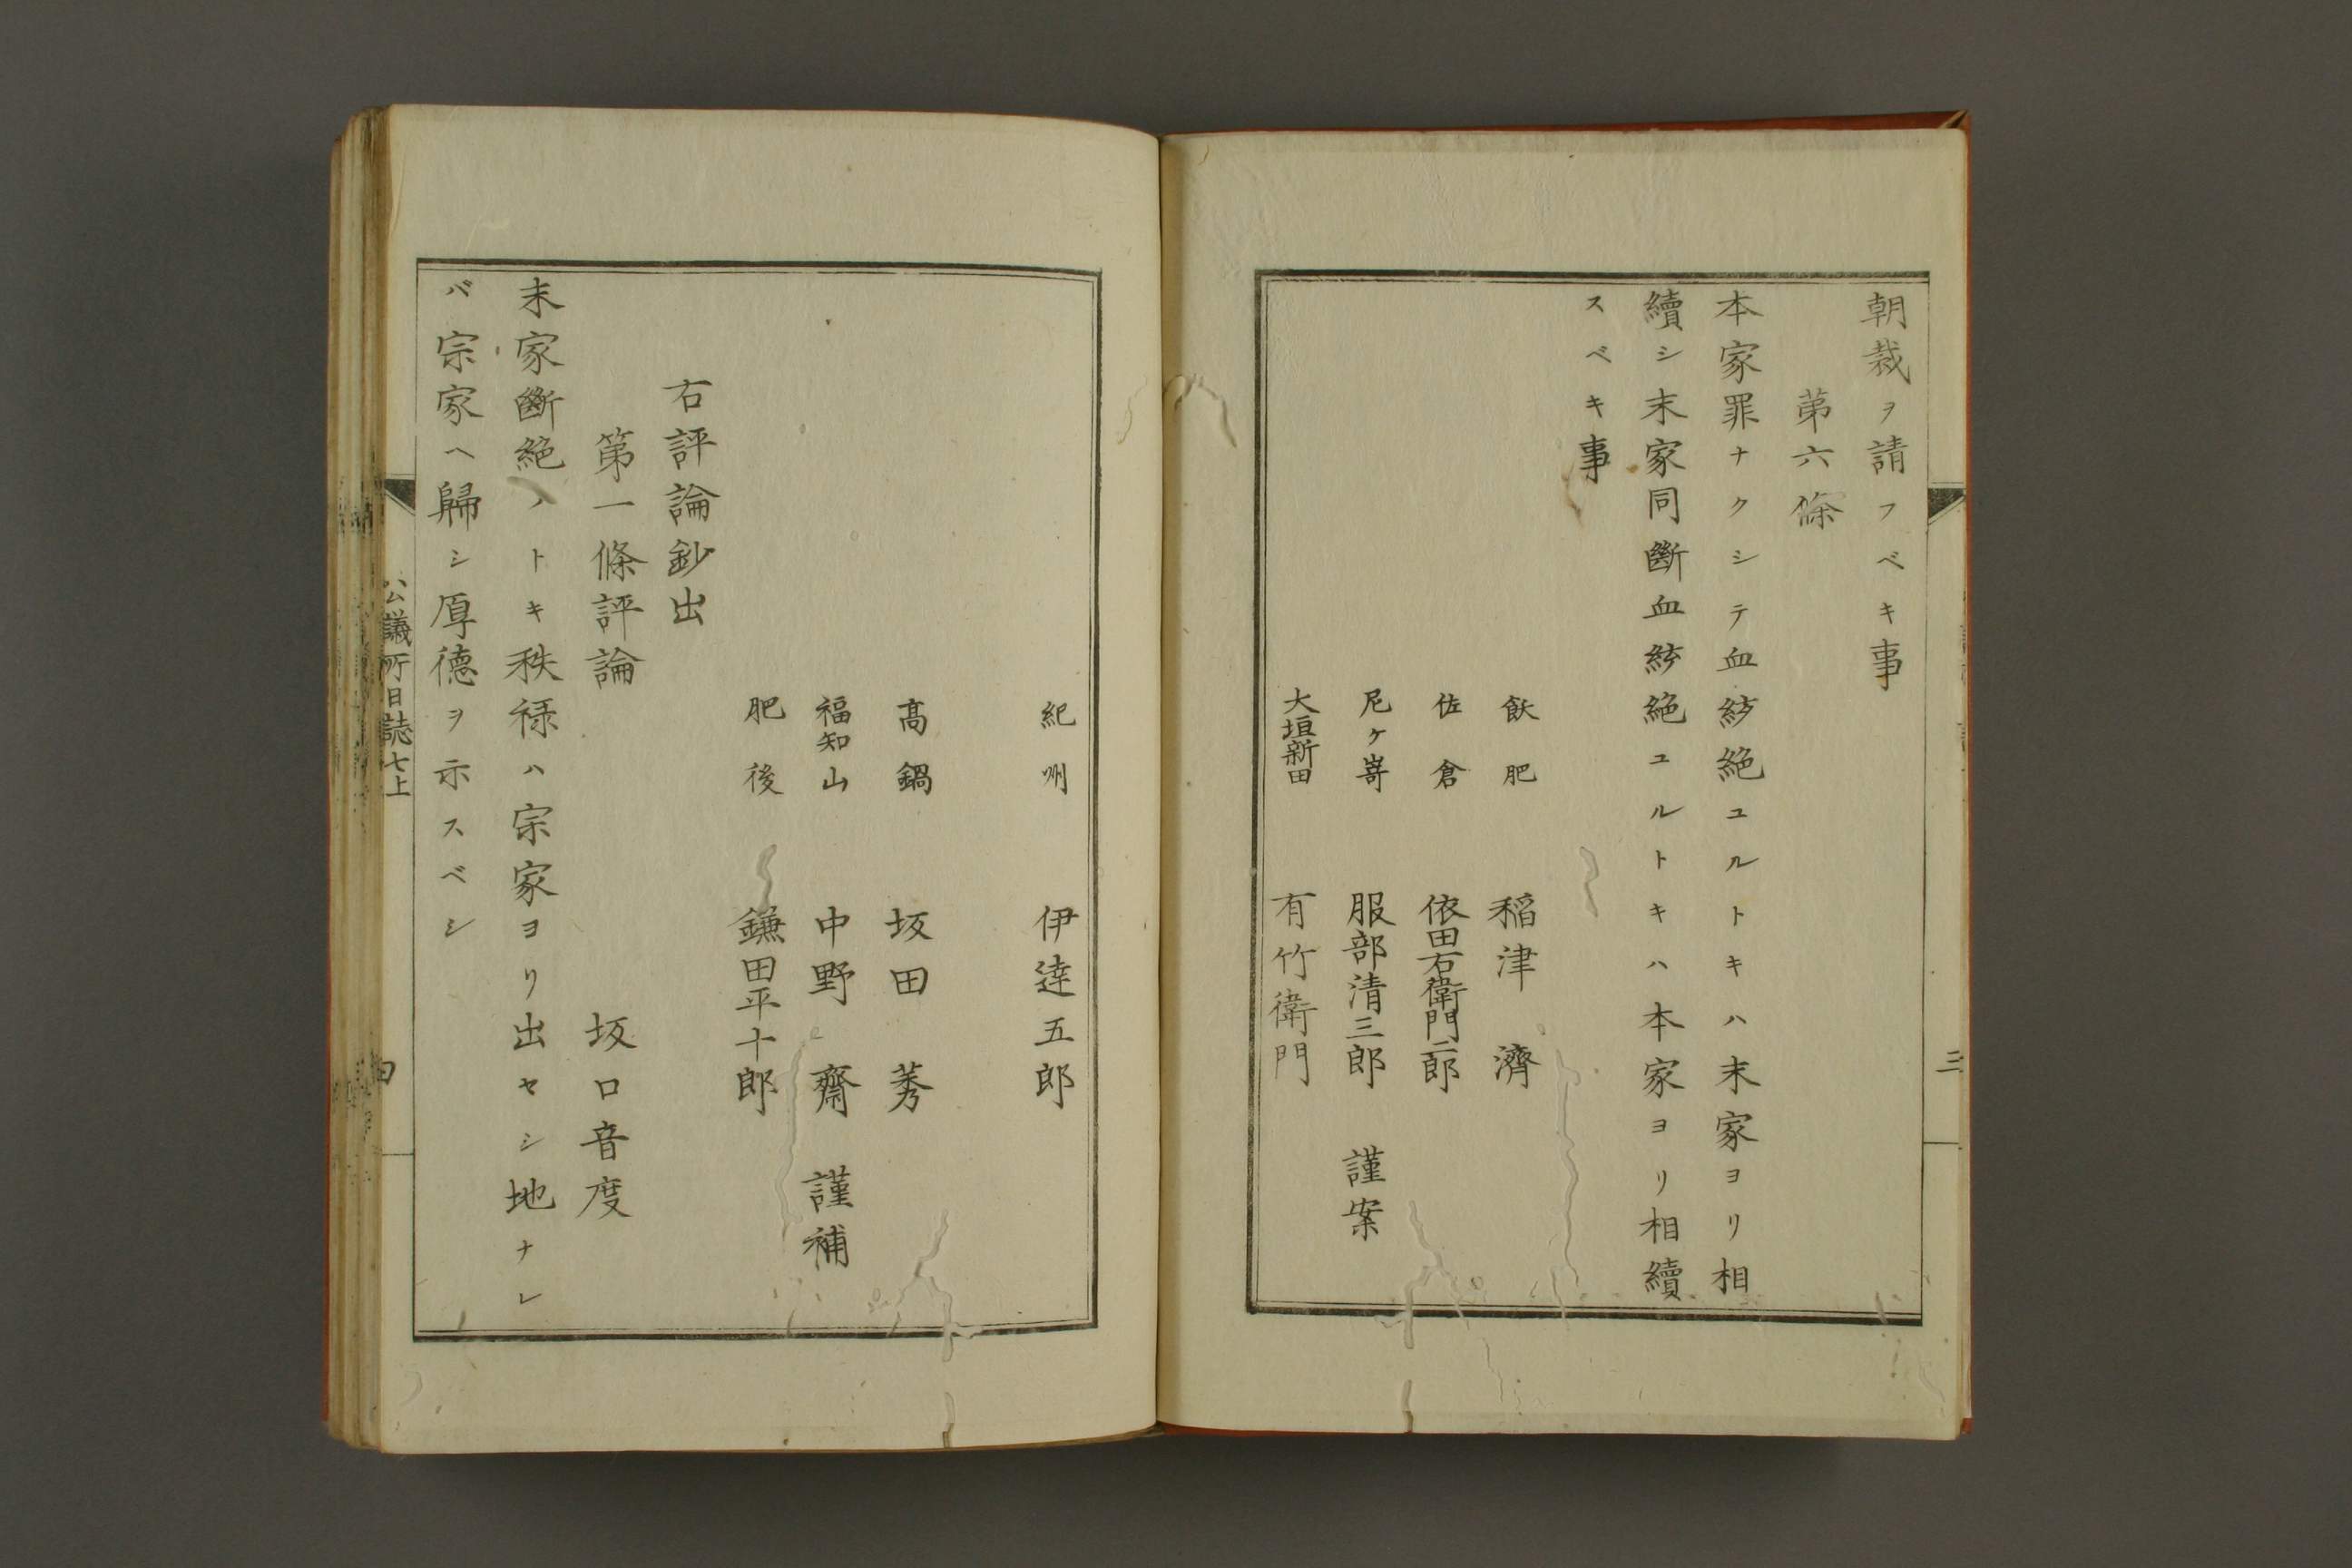 朝裁ヲ請フベキ事
第六條
本家罪ナクシテ血紗絶ユルトキハ末家ヨリ相
續シ末家同斷血紗絶ユルトキハ本家ヨリ相續
スベキ事
飫肥 稲津濟
佐倉 依田右衛門二郎
尼ヶ嵜 服部清三郎 謹案
大垣新田 有竹衛門
三
紀州 伊達五郎
高鍋 坂田莠
福知山 中野齋 謹補
肥後 鎌田平十郎
右評論鈔出
第一條評論
坂口音度
末家斷絶ノトキ秩禄ハ宗家ヨリ出セシ地ナレ
バ宗家ヘ歸シ厚德ヲ示スベシ
公議所日誌七上
四